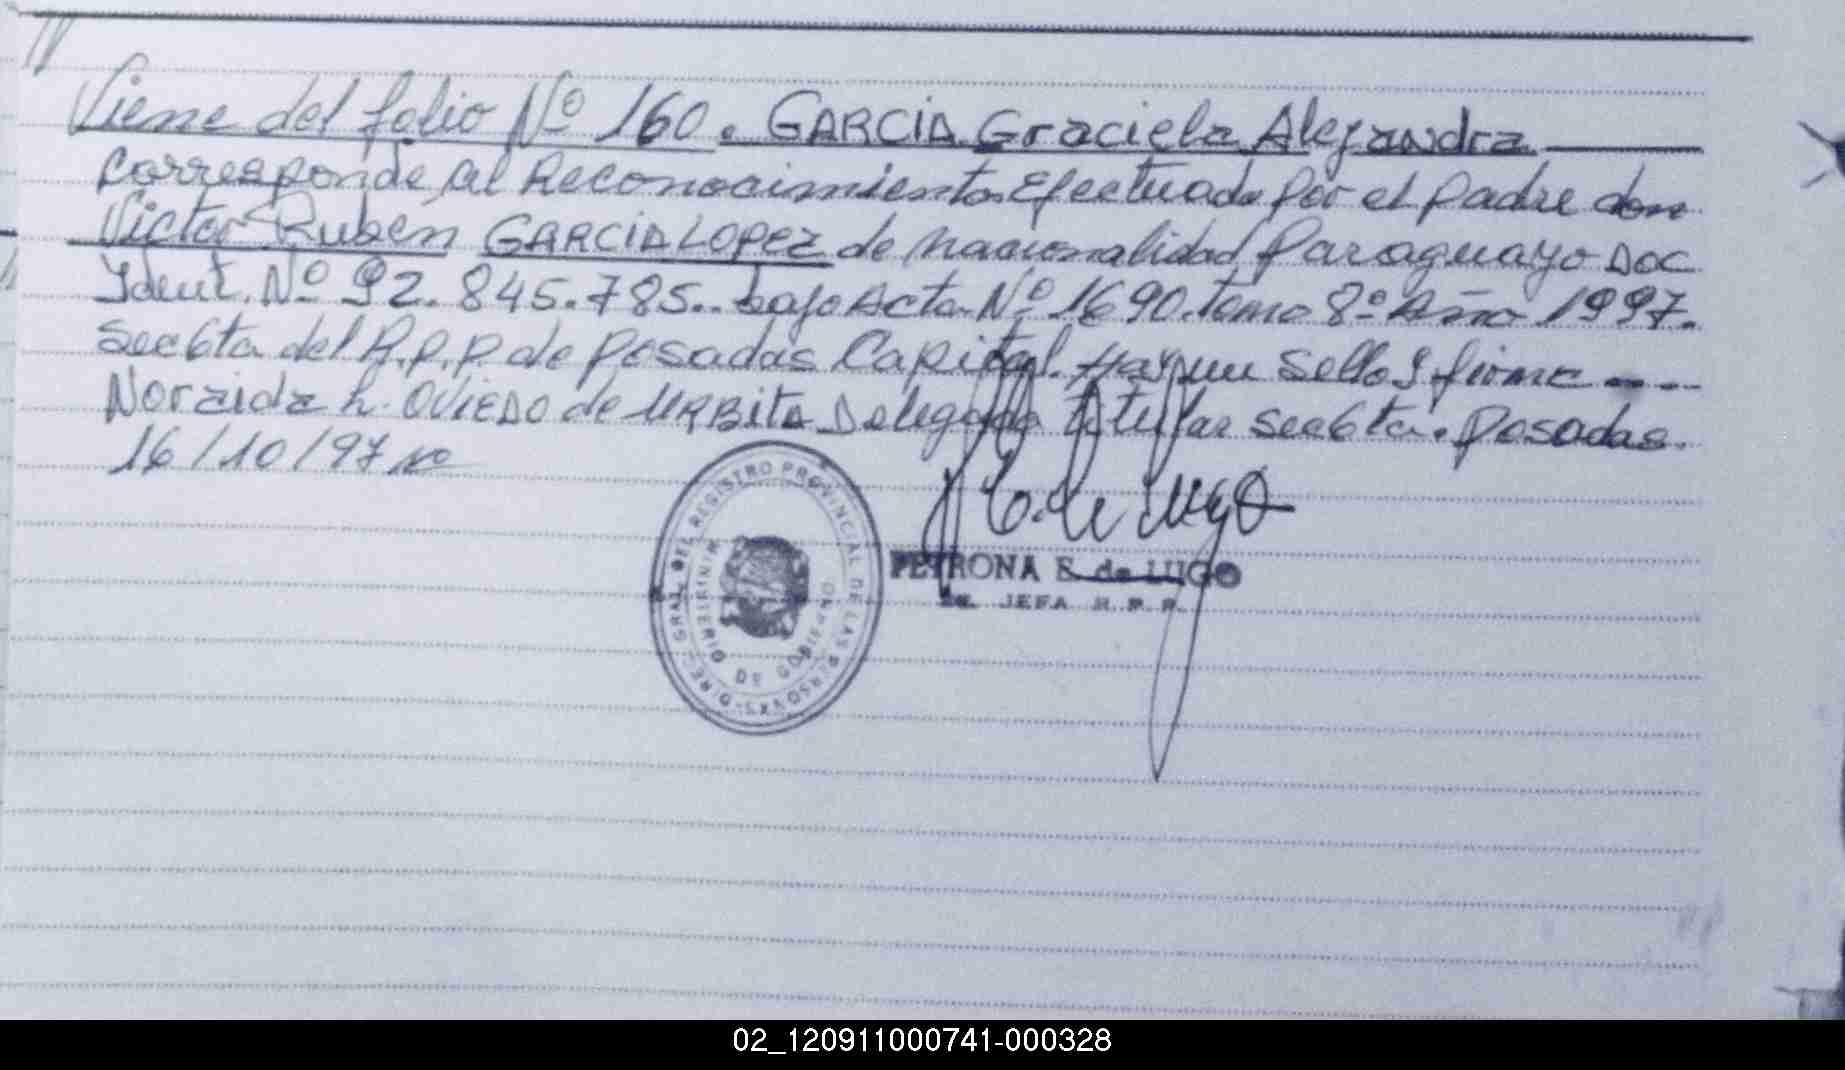 Viene del folio Nº 160. GARCIA Graciela Alejandra
Corresponde al Reconocimiento Efectuado por el padre don
Victor Ruben GARCIA LOPEZ de nacionalidad Paraguayo Doc
Ident. Nº 92.845.785.. bajo Acta Nº 1690. tomo 8º Año 1997.
Sec 6ta del R.P.P. de Posadas Capital. Hay un Sello y firma ----
Noraida h. OVIEDO de URBITA Delegada titular Sec 6ta. Posadas.
16/10/97
DIREC. GRAL. DEL REGISTRO PROVINCIAL DE LAS PERSONAS
MINISTERIO DE GOBIERNO
PETRONA E. de LUGO
JEFA R. P. P.
02_120911000741-000328